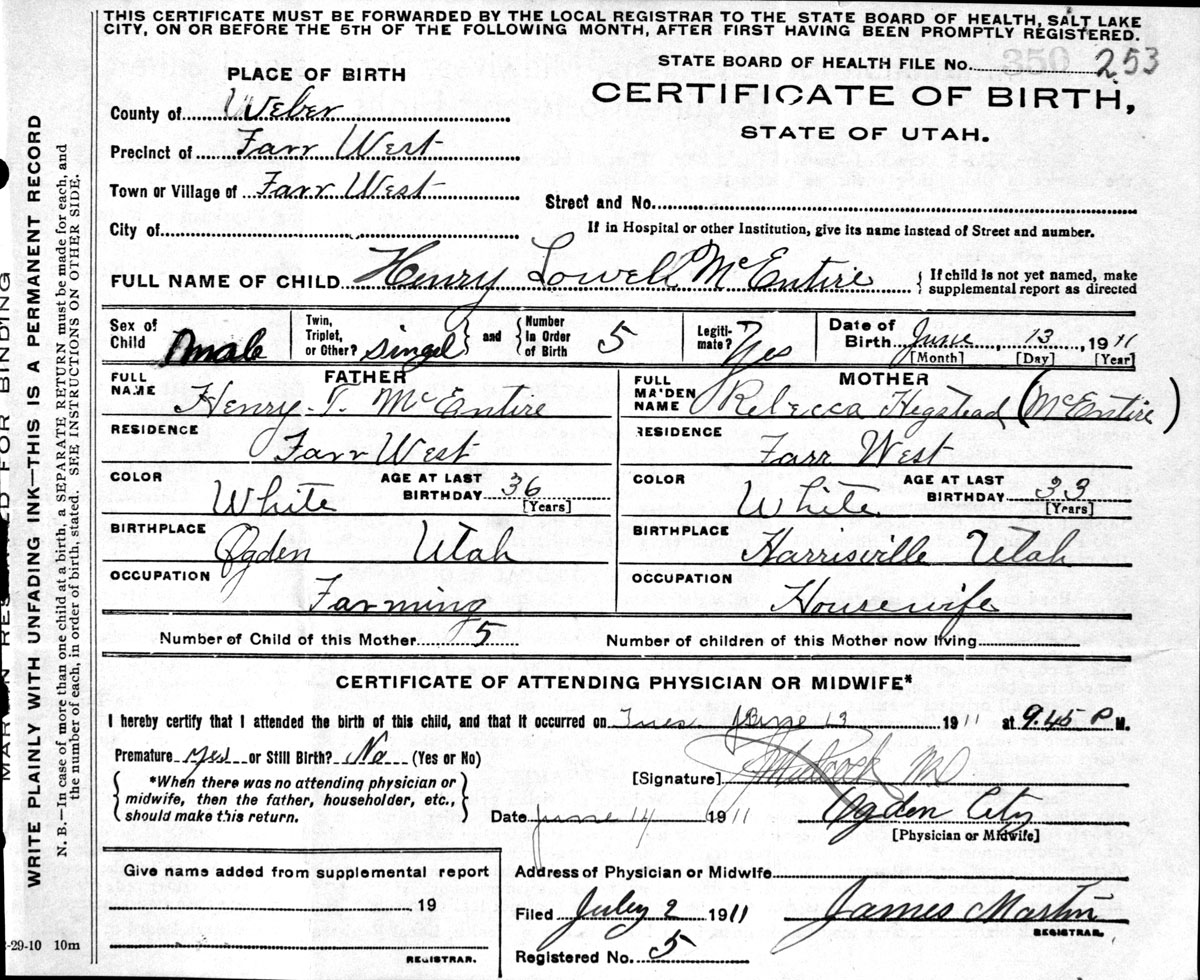 THIS CERTIFICATE MUST BE FORWARDED BY THE LOCAL REGISTRAR TO THE STATE BOARD OF HEALTH, SALT LAKE
CITY, ON OR BEFORE THE 5TH OF THE FOLLOWING MONTH, AFTER FIRST HAVING BEEN PROMPTLY REGISTERED.
STATE BOARD OF HEALTH FILE No. 350 253
PLACE OF BIRTH
CERTIFICATE OF BIRTH,
STATE OF UTAH.
County of Weber
Precinct of Farr West
Town or Village of Farr West
Street and No.
City of
If in Hospital or other Institution, give its name instead of Street and number.
FULL NAME OF CHILD Henry Lowell McEntire { If child is not yet named, make
supplemental report as directed
Sex of Child male
Twin, Triplet, or Other? singel } and { Number in Order of Birth 5
Legiti-mate? Yes
Date of Birth June 13, 1911
[Month] [Day] [Year]
FATHER
FULL NAME Henry T. McEntire
RESIDENCE Farr West
COLOR White AGE AT LAST BIRTHDAY 36 [Years]
BIRTHPLACE Ogden Utah
OCCUPATION Farming
MOTHER
FULL MAIDEN NAME Rebecca Hegstead (McEntire)
RESIDENCE Farr West
COLOR White AGE AT LAST BIRTHDAY 33 [Years]
BIRTHPLACE Harrisville Utah
OCCUPATION Housewife
Number of Child of this Mother 5 Number of children of this Mother now living
CERTIFICATE OF ATTENDING PHYSICIAN OR MIDWIFE*
I hereby certify that I attended the birth of this child, and that it occurred on Tues June 13 1911 at 9.45 P M.
Premature yes or Still Birth? No (Yes or No)
{ *When there was no attending physician or
midwife, then the father, householder, etc.,
should make this return. }
[Signature] MD
Date June 14 1911 Ogden City
[Physician or Midwife]
Give name added from supplemental report
19
REGISTRAR.
Address of Physician or Midwife
Filed July 2 1911 James Martin
REGISTRAR.
Registered No. 5
-29-10 10m
WRITE PLAINLY WITH UNFADING INK—THIS IS A PERMANENT RECORD
N. B.—In case of more than one child at a birth, a SEPARATE RETURN must be made for each, and
the number of each, in order of birth, stated. SEE INSTRUCTIONS ON OTHER SIDE.
FOR BINDING